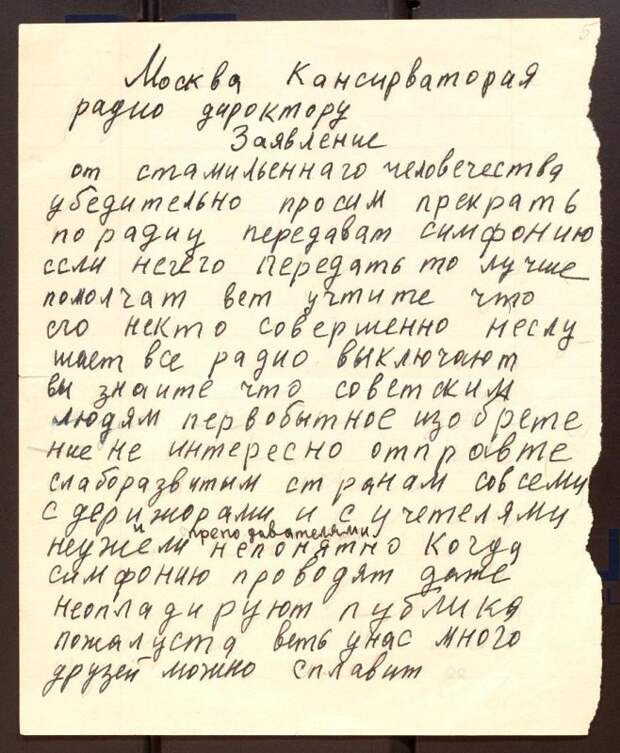 5
Москва Кансирватория
радио дироктору
Заявление
от стамильеннаго человечества
убедительно просим прекрать
по радиу передават симфонию
если нечего передать то лучше
помолчат вет учтите что
его некто совершенно неслу
шает все радио выключают
вы знаите что советским
людям первобытное изобрете
ние не интересно отправте
слаборазвитым странам совсеми
с дерижорами и с учетелями
и преподавателями
неужели непонятно когда
симфонию проводят даже
неопладируют публика
пожалуста веть унас много
друзей можно сплавит